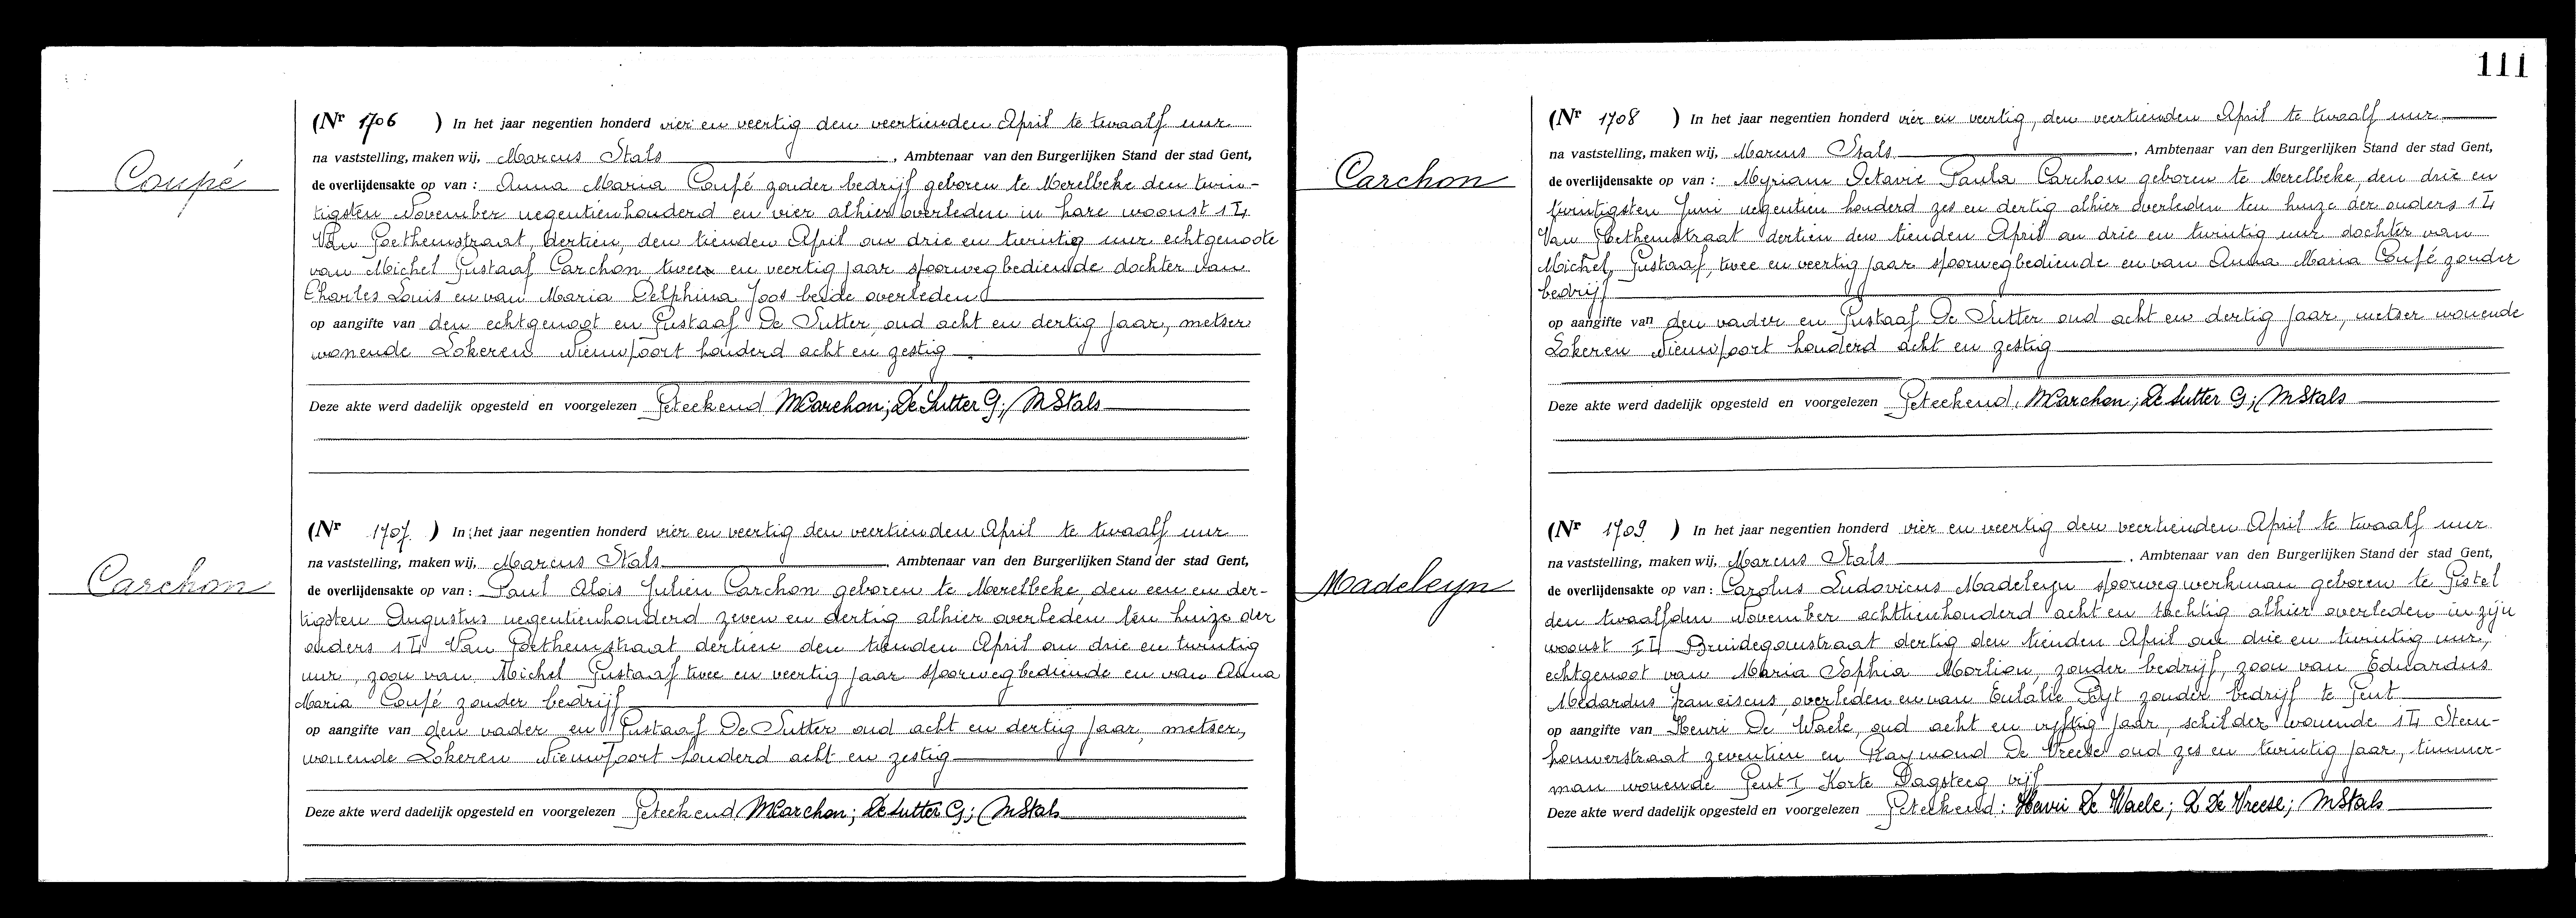 Coupé
(Nr 1706 ) In het jaar negentien honderd vier en veertig den veertienden April te twaalf uur
na vaststelling, maken wij, Marcus Stals , Ambtenaar van den Burgerlijken Stand der stad Gent,
de overlijdensakte op van : Anna Maria Coupé zonder bedrijf geboren te Merelbeke den twin-
tigsten November negentienhonderd en vier alhier overleden in hare woonst 14
Van Goethemstraat, dertien, den tienden April om drie en twintig uur echtgenoote
van Michel Gustaaf Carchon twee en veertig jaar spoorwegbediende dochter van
Charles Louis en van Maria Delphina Joos beide overleden
op aangifte van den echtgenoot en Gustaaf De Sutter, oud acht en dertig jaar, metser
wonende Lokeren Nieuwpoort honderd acht en zestig
Deze akte werd dadelijk opgesteld en voorgelezen Geteekend MCarchon; De Sutter G; MStals
Carchon
(Nr 1707 ) In het jaar negentien honderd vier en veertig den veertienden April te twaalf uur
na vaststelling, maken wij, Marcus Stals , Ambtenaar van den Burgerlijken Stand der stad Gent,
de overlijdensakte op van : Paul Alois Julien Carchon geboren te Merelbeke, den een en der-
tigsten Augustus negentienhonderd zeven en dertig alhier overleden ten huize der
ouders 14 Van Goethemstraat dertien den tienden April om drie en twintig
uur, zoon van Michel Gustaaf twee en veertig jaar spoorwegbediende en van Anna
Maria Coupé zonder bedrijf
op aangifte van den vader en Gustaaf De Sutter oud acht en dertig jaar, metser,
wonende Lokeren Nieuwpoort honderd acht en zestig
Deze akte werd dadelijk opgesteld en voorgelezen Geteekend MCarchon; De Sutter G; MStals
111
Carchon
(Nr 1708 ) In het jaar negentien honderd vier en veertig, den veertienden April te twaalf uur
na vaststelling, maken wij, Marcus Stals , Ambtenaar van den Burgerlijken Stand der stad Gent,
de overlijdensakte op van : Myriam Octavie Paula Carchon geboren te Merelbeke, den drie en
twintigsten Juni negentien honderd zes en dertig alhier overleden ten huize der ouders 14
Van Goethemstraat dertien den tienden April om drie en twintig uur dochter van
Michel, Gustaaf, twee en veertig jaar spoorwegbediende en van Anna Maria Coupé zonder
bedrijf
op aangifte van den vader en Gustaaf De Sutter oud acht en dertig jaar, metser wonende
Lokeren Nieuwpoort honderd acht en zestig
Deze akte werd dadelijk opgesteld en voorgelezen Geteekend, MCarchon; De Sutter G; MStals
Madeleyn
(Nr 1709 ) In het jaar negentien honderd vier en veertig den veertienden April te twaalf uur
na vaststelling, maken wij, Marcus Stals , Ambtenaar van den Burgerlijken Stand der stad Gent,
de overlijdensakte op van : Carolus Ludovicus Madeleyn spoorwegwerkman geboren te Gistel
den twaalfden November achttienhonderd acht en tachtig alhier overleden in zijn
woonst 14 Bruidegomstraat dertig den tienden April om drie en twintig uur,
echtgenoot van Maria Sophia Mortion, zonder bedrijf, zoon van Eduardus
Medardus Franciscus, overleden en van Eulalie Ryt zonder bedrijf te Gent
op aangifte van Henri De Waele, oud acht en vijftig jaar, schilder wonende 14 Steen-
houwerstraat zeventien en Raymond De Vreese oud zes en twintig jaar, timmer-
man wonende Gent I Korte Dagsteeg vijf
Deze akte werd dadelijk opgesteld en voorgelezen Geteekend : Henri De Waele; R De Vreese; MStals